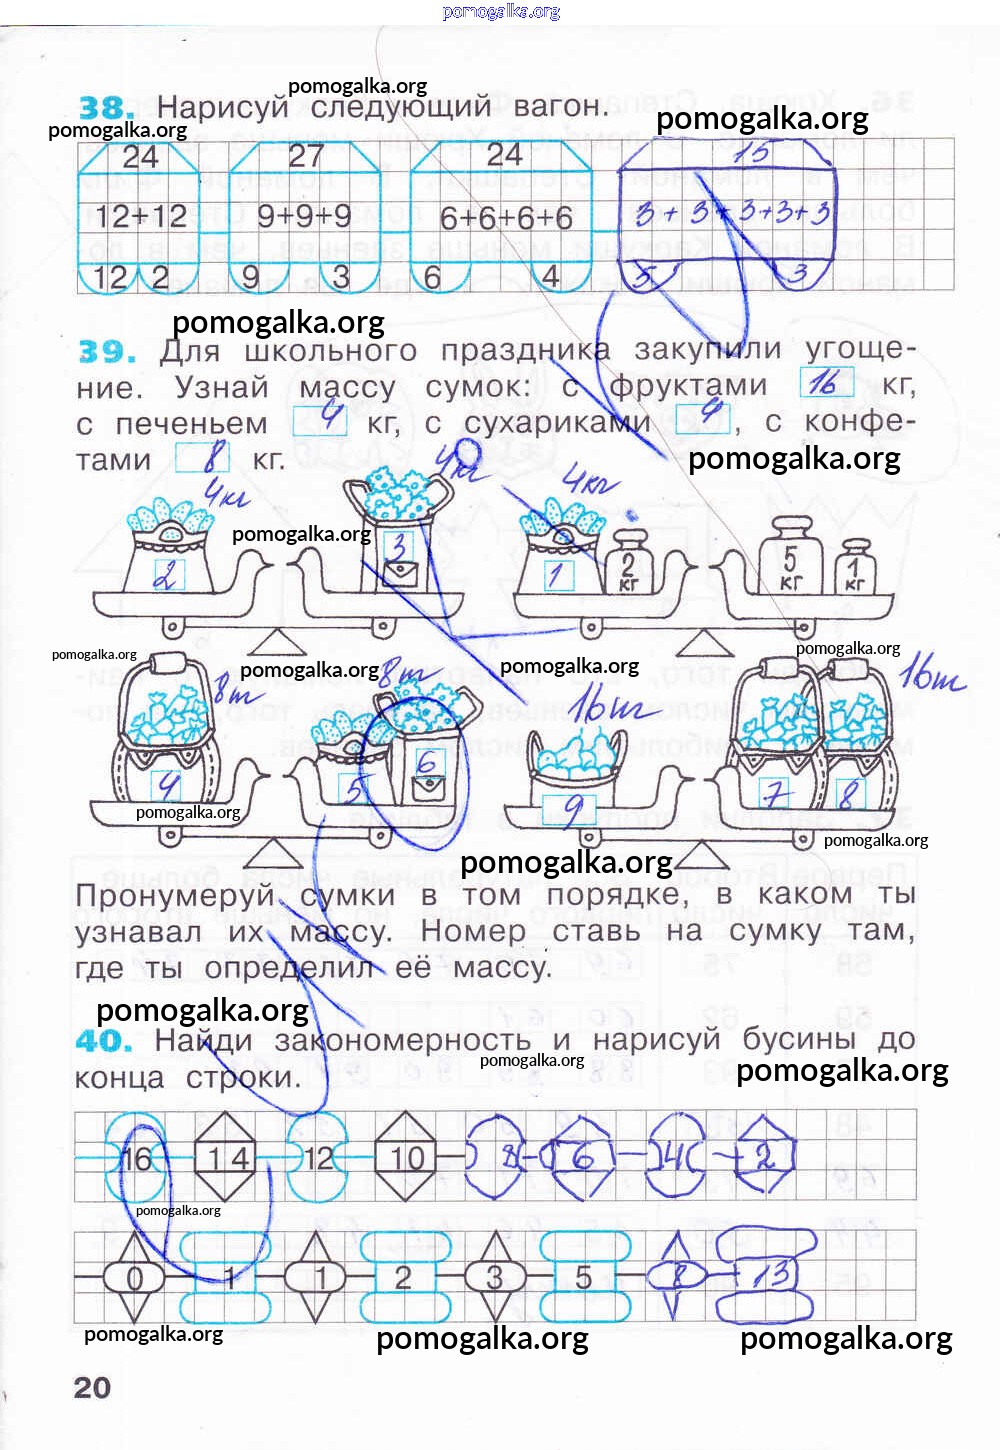 pomogalka.org
pomogalka.org
38. Нарисуй следующий вагон.
pomogalka.org
pomogalka.org
24 27 24 15
12+12 9+9+9 6+6+6+6 3+3+3+3+3
12 2 9 3 6 4 5 3
pomogalka.org
39. Для школьного праздника закупили угоще-
ние. Узнай массу сумок: с фруктами 16 кг,
с печеньем 4 кг, с сухариками 4, с конфе-
тами 8 кг.
pomogalka.org
4кг 4кг 4кг
pomogalka.org
2 3 1 2 кг 5 кг 1 кг
pomogalka.org
pomogalka.org
pomogalka.org
pomogalka.org
8т 8т 16т 16т
4 5 6 9 7 8
pomogalka.org
pomogalka.org
pomogalka.org
Пронумеруй сумки в том порядке, в каком ты
узнавал их массу. Номер ставь на сумку там,
где ты определил её массу.
pomogalka.org
40. Найди закономерность и нарисуй бусины до
конца строки.
pomogalka.org
pomogalka.org
16 14 12 10 8 6 4 2
pomogalka.org
0 1 1 2 3 5 8 13
pomogalka.org
pomogalka.org
pomogalka.org
20